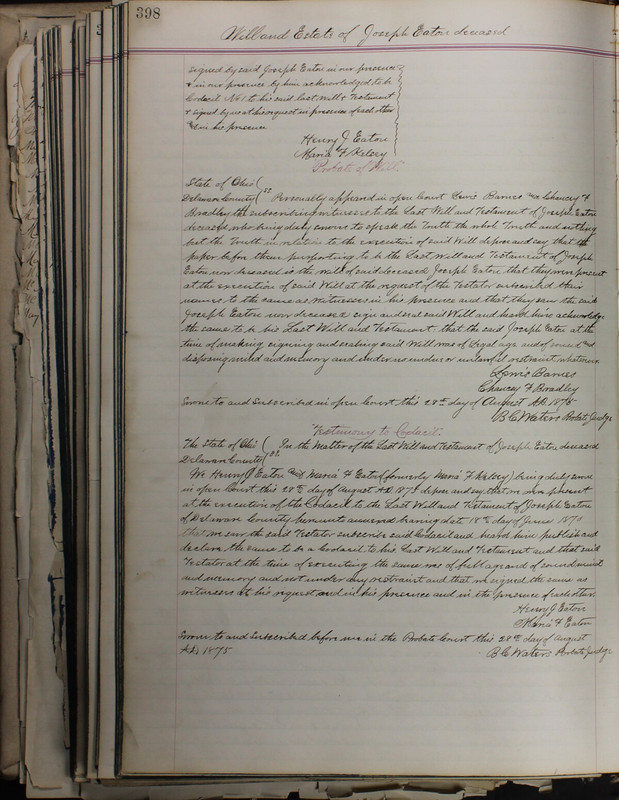 398
Will and Estate of Joseph Eaton deceased
Signed by said Joseph Eaton in our presence
& in our presence by him acknowledged to be
Codacil No 1 to his said last Will & Testament
& signed by us at his request in presence of each other
& in his presence
Henry J Eaton
Maria F Kelsey
Probate of Will
State of Ohio
Delaware County SS Personally appeared in open Court Lewis Barnes and Chancey F
Bradley the subscribing witnesses to the Last Will and Testament of Joseph Eaton
deceased who being duly sworn to speak the Truth the whole Truth and nothing
but the Truth in relation to the execution of said Will depose and say that the
paper before them purporting to be the Last Will and Testament of Joseph
Eaton now deceased is the will of said deceased Joseph Eaton that they were present
at the execution of said Will at the request of the Testator subscribed their
names to the same as witnesses in his presence and that they saw the said
Joseph Eaton now deceased sign and seal said Will and heard him acknowledge
the same to be his Last Will and Testament that the said Joseph Eaton at the
time of making signing and sealing said Will was of Legal age and of sound and
disposing mind and memory and under no undue or unlawful restraint whatsoever
Lewis Barnes
Chancey F Bradley
Sworn to and Subscribed in open Court this 28th day of August AD. 1875
B C Waters Probate Judge
Testimony to Codacil
The State of Ohio In the Matter of the Last Will and Testament of Joseph Eaton deceased
Delaware County SS
We Henry J Eaton and Maria F Eaton (formerly Maria F Kelsey) being duly sworn
in open Court this 28th day of August AD 1875 depose and say that we were present
at the execution of the Codacil to the Last Will and Testament of Joseph Eaton
of Delaware County hereunto annexed bearing date 18th day of June
that we saw the said Testator subscribe said Codacil and heard him publish and
declare the same to be a Codacil to his Last Will and Testament and that said
Testator at the time of executing the same was of full age and of sound mind
and memory and not under any restraint and that we signed the same as
witnesses at his request and in his presence and in the presence of each other
Henry J Eaton
Maria F Eaton
Sworn to and Subscribed before me in the Probate Court this 28th day of August
AD 1875 B C Waters Probate Judge